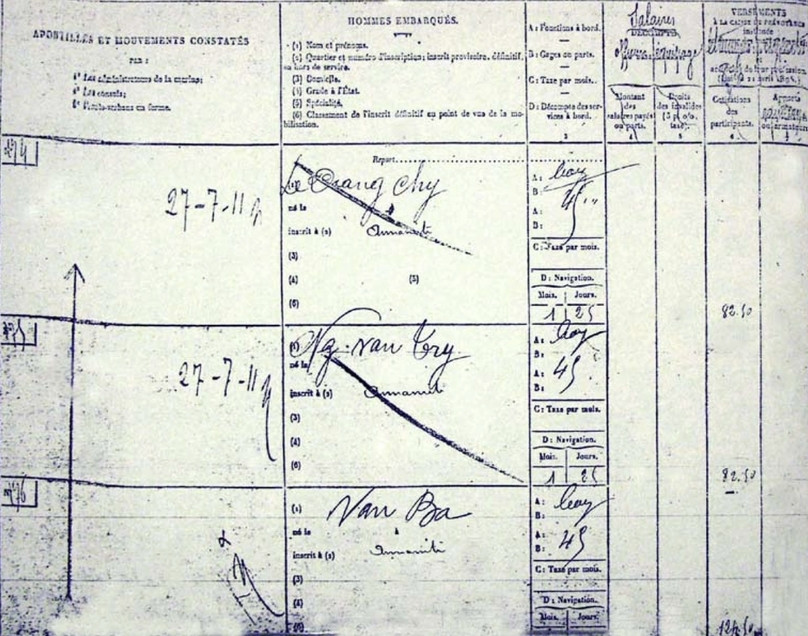 APOSTILLES ET MOUVEMENTS CONSTATÉS
PAR :
1° Les administrateurs de la marine;
2° Les consuls;
HOMMES EMBARQUÉS.
(1) Nom et prénoms.
(2) Quartier et numéro d'inscription; inscrit provisoire, définitif,
ou hors de service.
(3) Domicile.
(4) Grade à l'État.
(5) Spécialité.
(6) Classement de l'inscrit définitif au point de vue de la mo-
bilisation.
A : Fonctions à bord.
B : Gages ou parts.
C : Taxe par mois.
D : Décompte des ser-
vices à bord.
Salaires
DÉCOMPTE
Montant
des
salaires payés
ou parts.
Droits
des invalides
VERSEMENTS
À LA CAISSE DE PRÉVOYANCE
Cotisations
des
participants.
Apports
Report
27-7-11
Le Quang Chy
né le
inscrit à (2) Annamite
(3)
(4) (5)
(6)
A : boy
B : 45
A :
B :
C : Taxe par mois.
D : Navigation.
Mois. Jours.
1 25
82.50
27-7-11
(1) Ng. Van Try
né le
inscrit à (2) Annamite
(3)
(4)
(6)
A : boy
B :
A : 45
B :
C : Taxe par mois.
D : Navigation.
Mois. Jours.
1 25
82.50
(1) Van Ba
né le à
inscrit à (2) Annamite
(3)
(4)
(6)
A : boy
B :
A : 45
B :
C : Taxe par mois.
D : Navigation.
Mois. Jours.